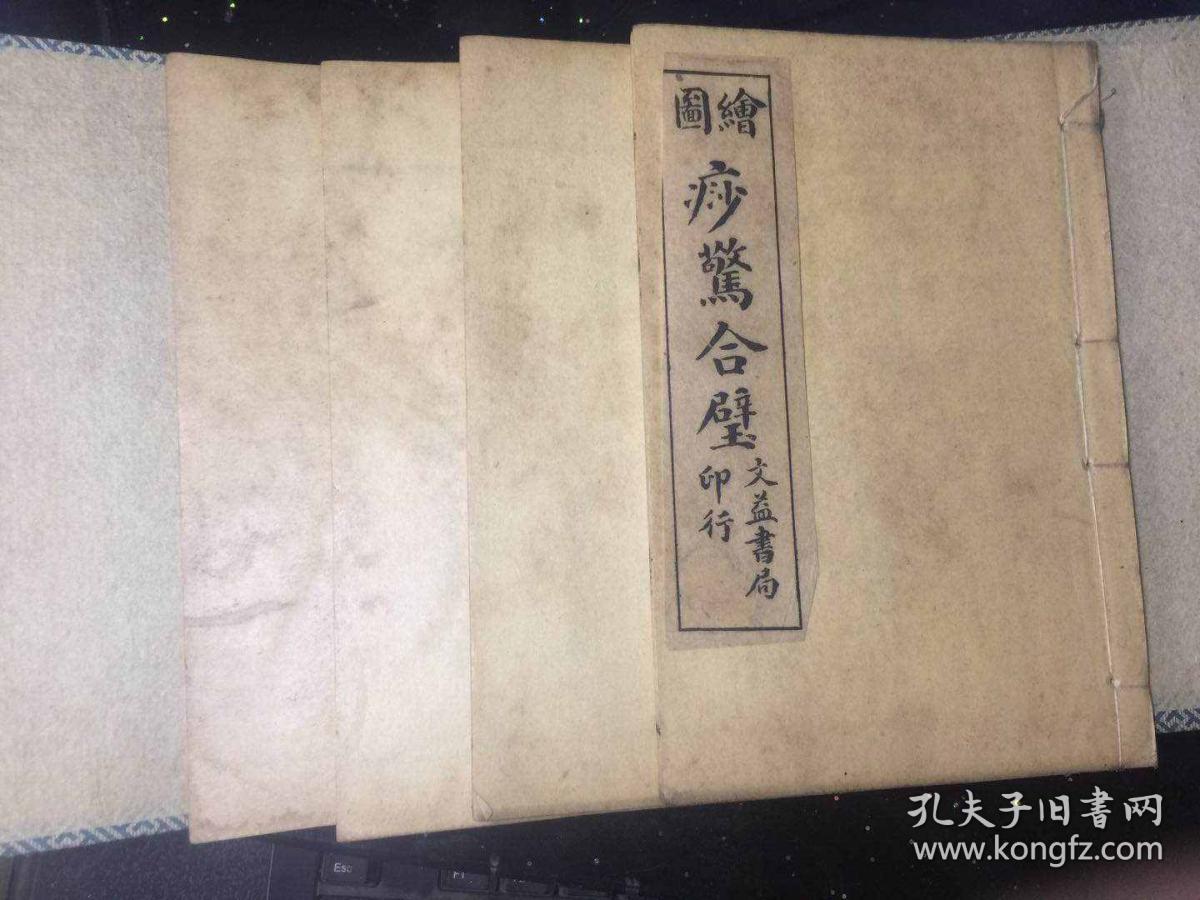 繪圖
痧驚合璧
文益書局
印行
Esc
F1
孔夫子旧书网
www.kongfz.com